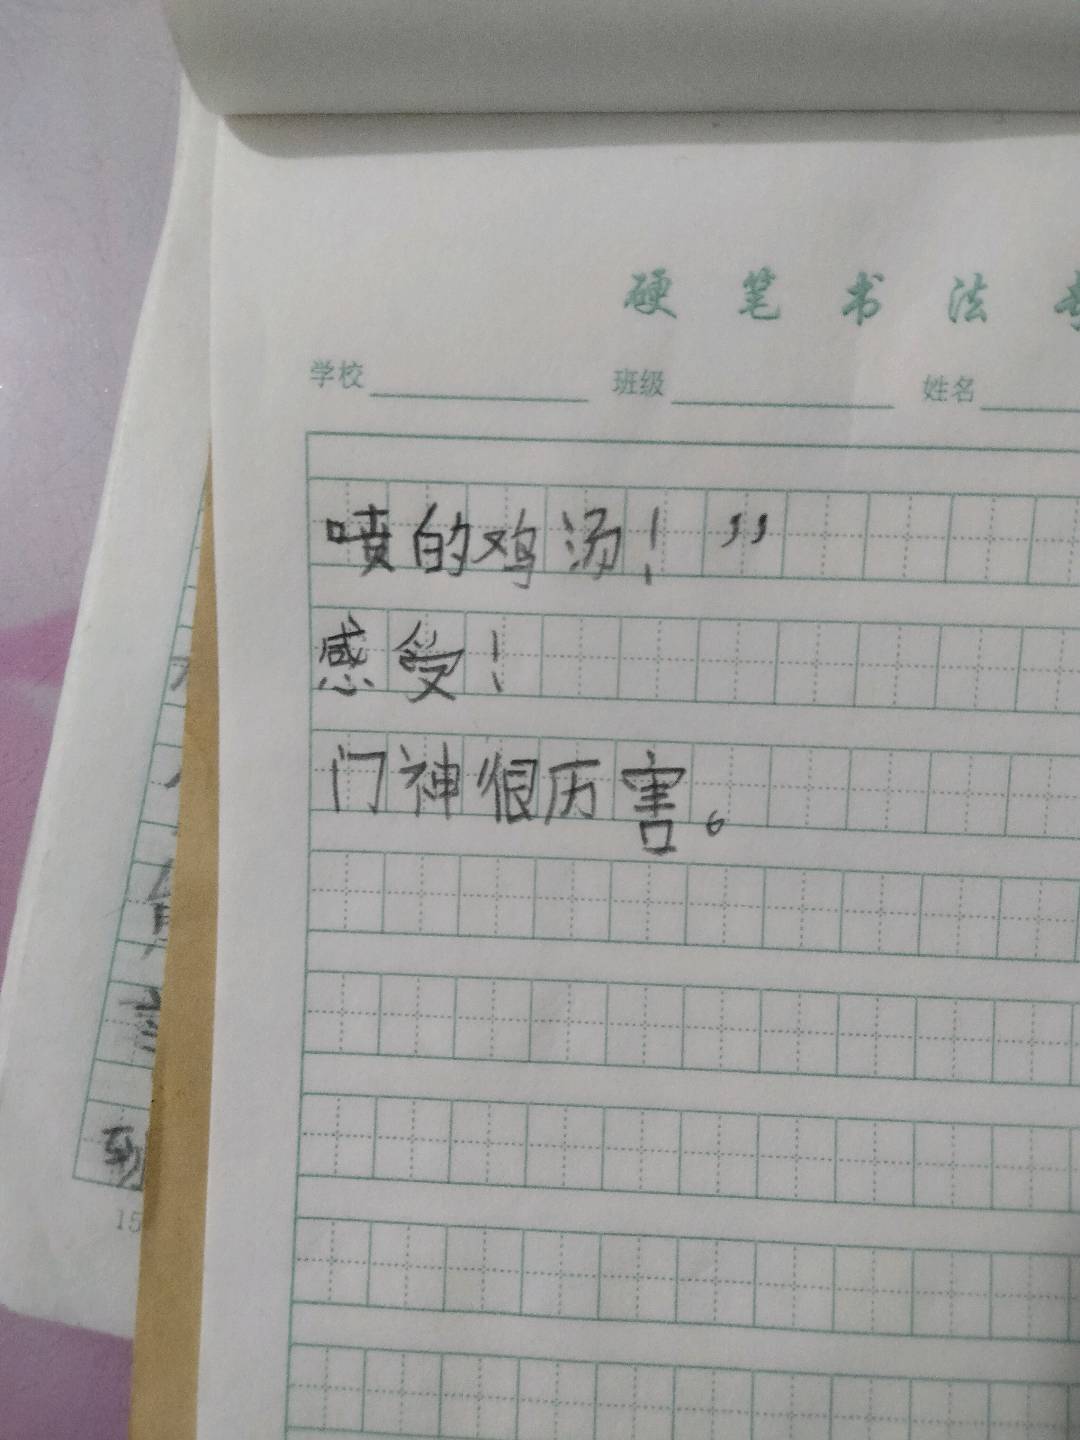 硬笔书法
学校 班级 姓名
喷的鸡汤！”
感受！
门神很厉害。
到
15